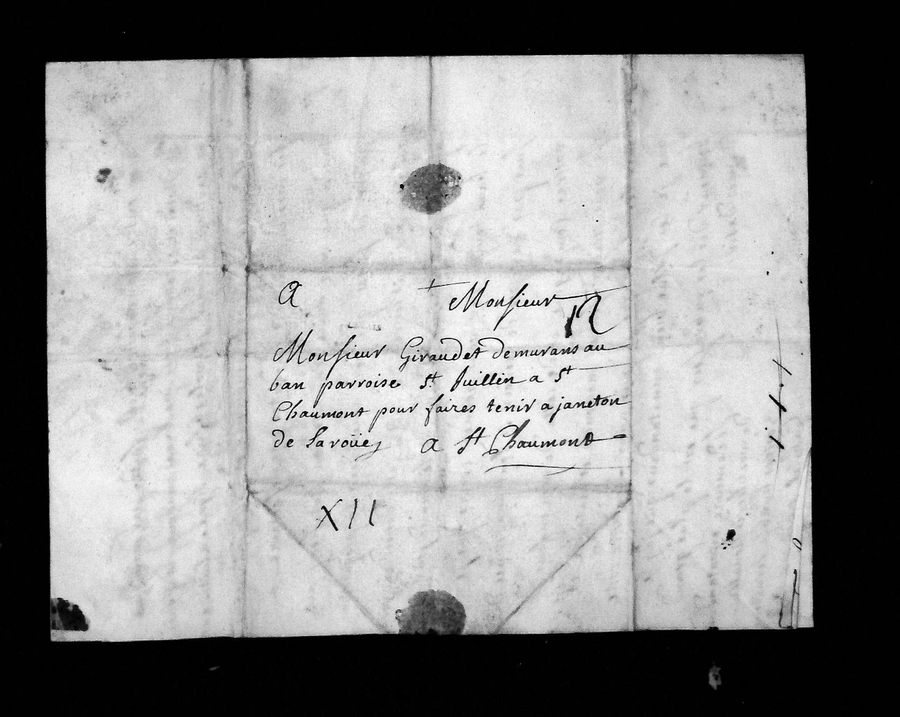 A Monsieur
12
Monsieur Giraudet demurans au
ban parroise St Juillin a St
Chaumont pour faires tenir a janeton
de Laroüe a St Chaumont
XII